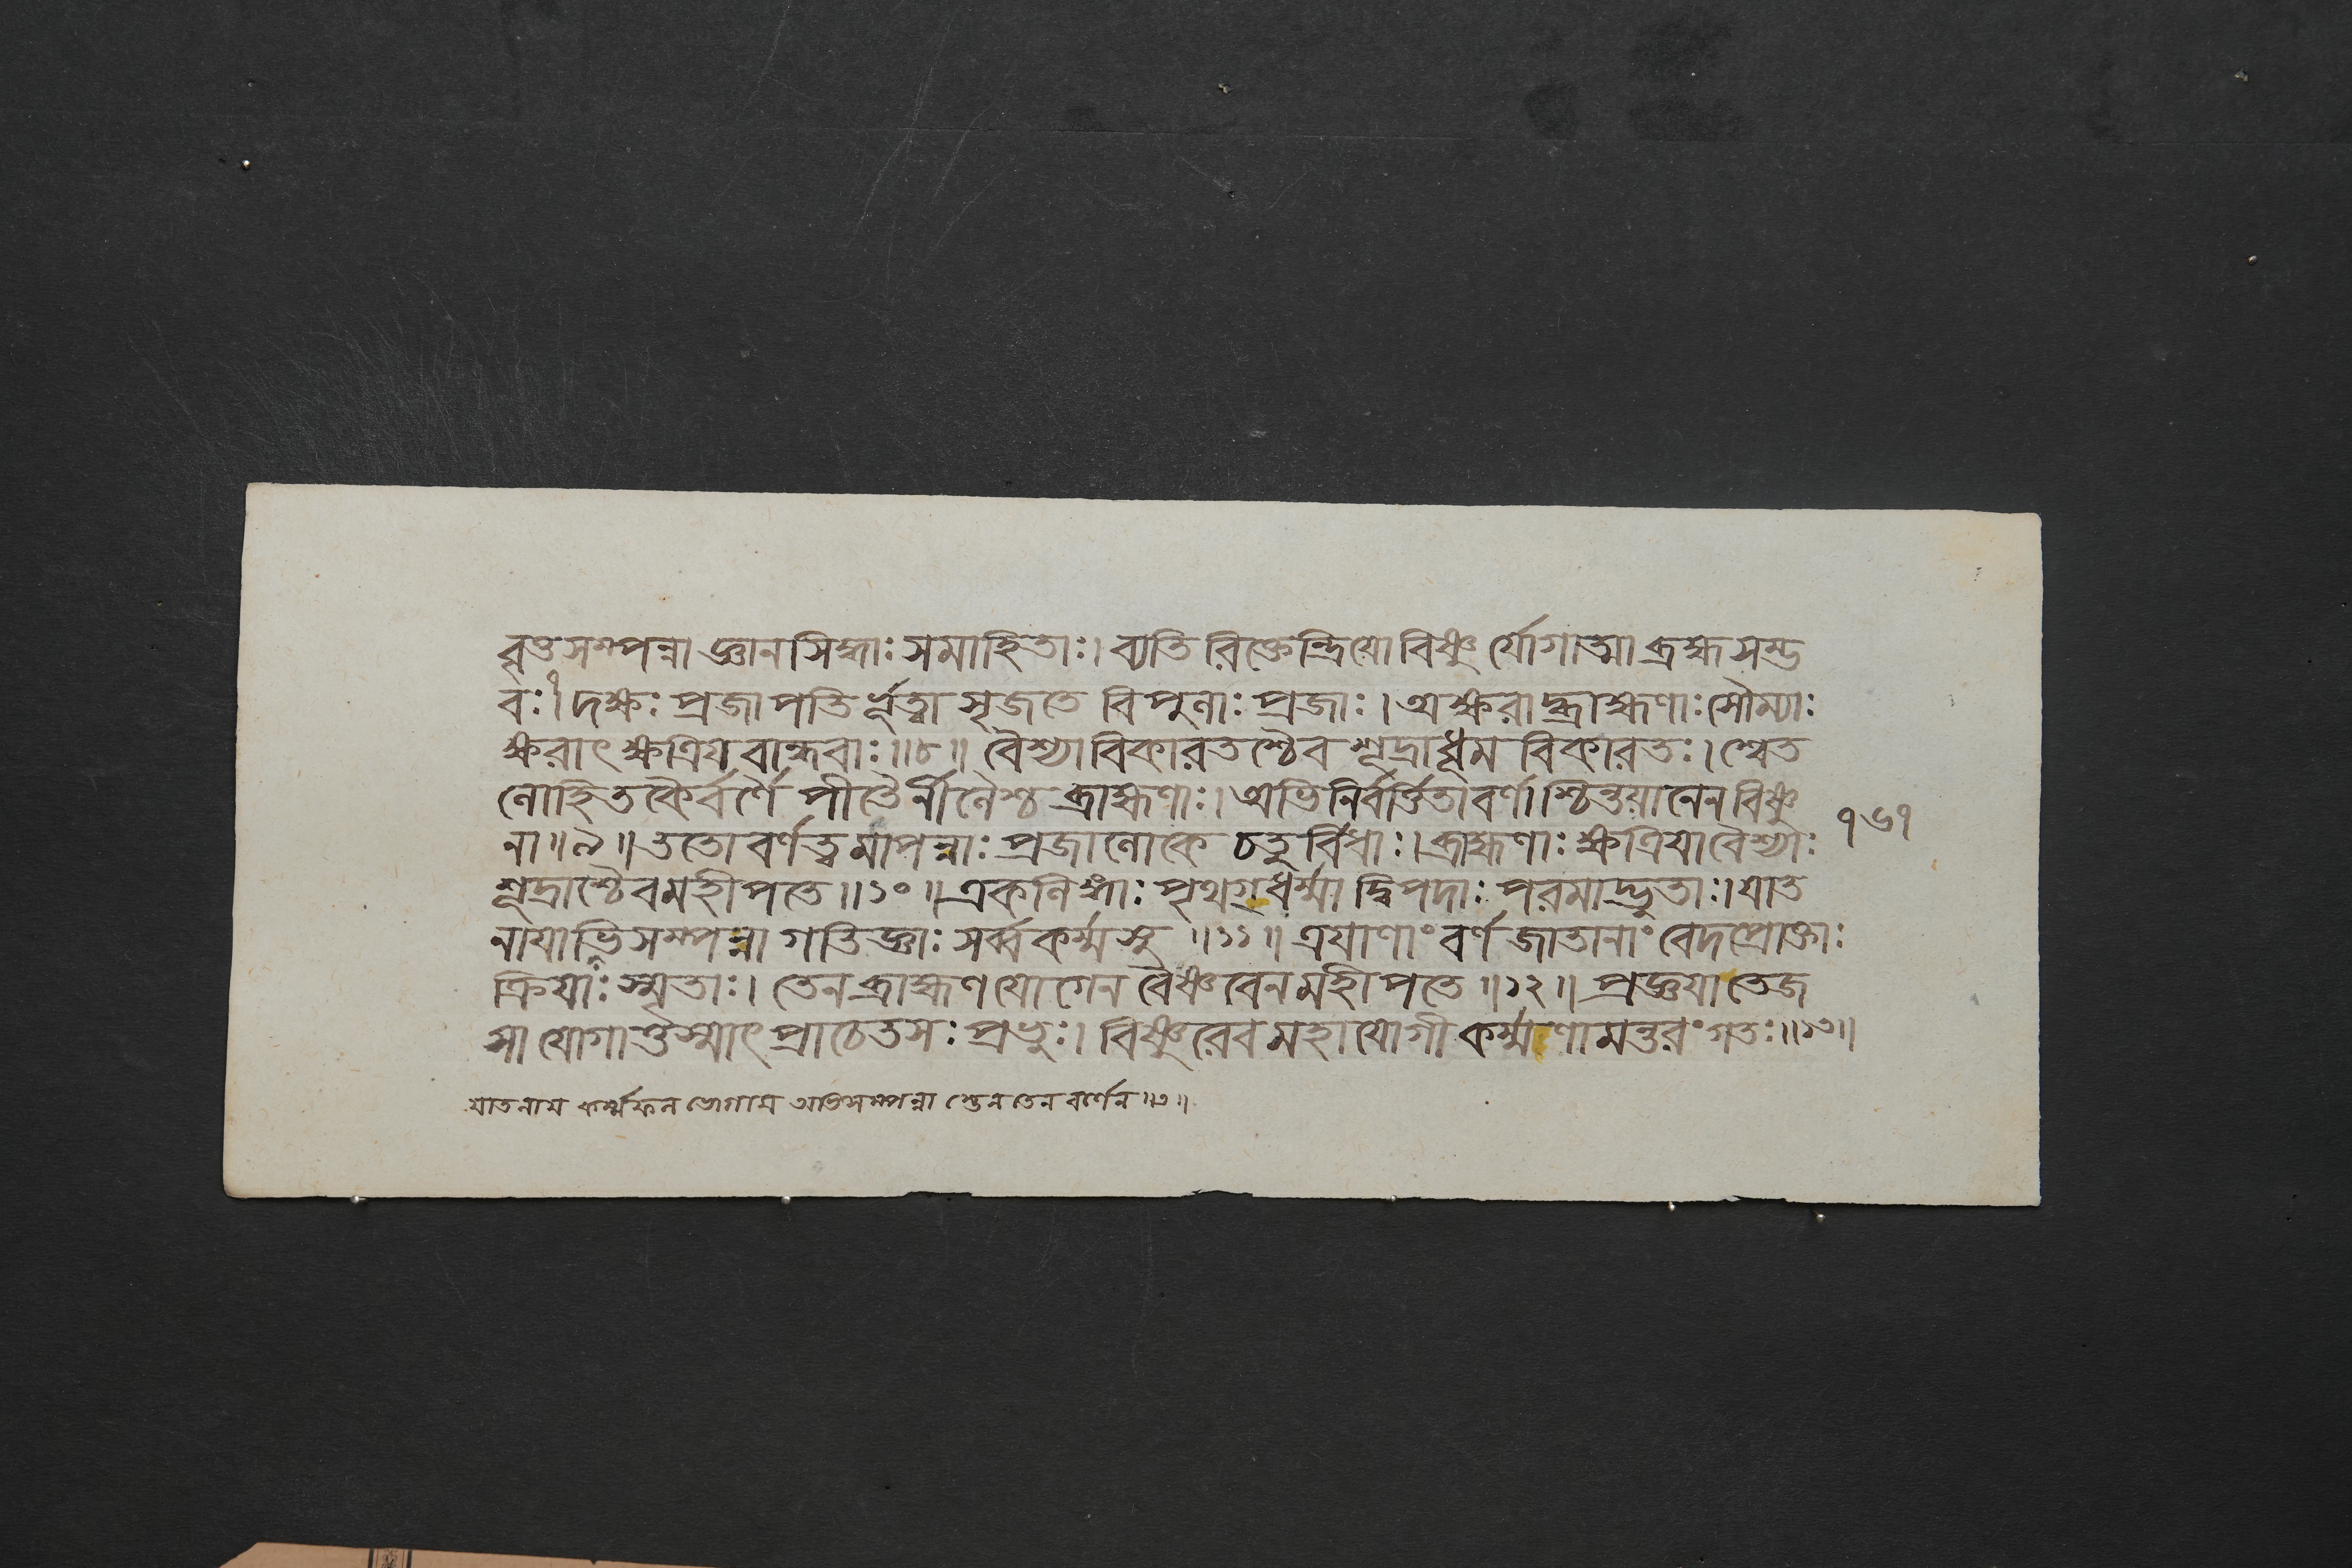 বৃত্তসম্পন্না জ্ঞানসিদ্ধাঃ সমাহিতাঃ। ব্যতিরিক্তেন্দ্রিয়ো বিষ্ণুর্যোগাত্মা ব্রহ্মসম্ভ
বঃ।৭ দক্ষঃ প্রজাপতির্ভূত্বা সৃজতে বিপুলাঃ প্রজাঃ। অক্ষরাদ্ব্রাহ্মণাঃ সৌম্যাঃ
ক্ষরাৎ ক্ষত্রিয়বান্ধবাঃ॥৮॥ বৈশ্যা বিকারতশ্চৈব শূদ্রা ধূমবিকারতঃ। শ্বেত
লোহিতকৈর্বর্ণৈ পীতৈর্নীলৈশ্চ ব্রাহ্মণাঃ। অভিনির্বর্ত্তিতা বর্ণাশ্চিন্তয়ানেন বিষ্ণু
না॥৯॥ ততো বর্ণত্বমাপন্নাঃ প্রজা লোকে চতুর্বিধাঃ। ব্রাহ্মণাঃ ক্ষত্রিয়া বৈশ্যাঃ
৭৬৭
শূদ্রাশ্চৈব মহীপতে॥১০॥ একলিঙ্গাঃ পৃথগ্ধর্ম্মা দ্বিপদাঃ পরমাদ্ভুতাঃ। যাত
নায়াভিসম্পন্না গতিজ্ঞাঃ সর্ব্বকর্ম্মসু॥১১॥ ত্রয়াণাং বর্ণজাতানাং বেদপ্রোক্তাঃ
ক্রিয়াঃ স্মৃতাঃ। তেন ব্রাহ্মণযোগেন বৈষ্ণবেন মহীপতে॥১২॥ প্রজ্ঞয়া তেজ
সা যোগাত্তস্মাৎ প্রাচেতসঃ প্রভুঃ। বিষ্ণুরেব মহাযোগী কর্ম্মণামন্তরং গতঃ॥১৩॥
যাতনায় কর্ম্মফলভোগায় অভিসম্পন্না স্তেন তেন বর্ণেন॥৩॥